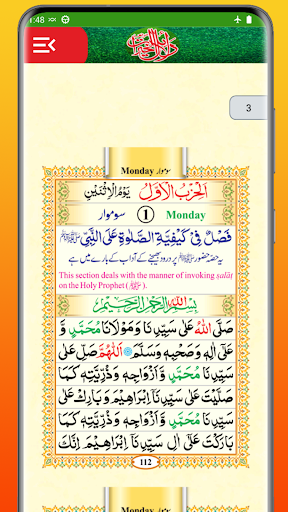 1:48
دلائل الخیرات
3
Monday سوموار
اَلْحِزْبُ الْاَوَّلُ یَوْمُ الْاِثْنَیْنِ
سوموار 1 Monday
فَصْلٌ فِیْ کَیْفِیَّةِ الصَّلٰوةِ عَلَی النَّبِیِّ ﷺ
یہ حصہ حضور ﷺ پر درود بھیجنے کے آداب کے بارے میں ہے
This section deals with the manner of invoking ṣalāt
on the Holy Prophet (ﷺ).
بِسْمِ اللّٰهِ الرَّحْمٰنِ الرَّحِیْمِ
صَلَّی اللّٰهُ عَلٰی سَیِّدِنَا وَمَوْلَانَا مُحَمَّدٍ وَّ
عَلٰۤی اٰلِهٖ وَصَحْبِهٖ وَسَلَّمَ اَللّٰهُمَّ صَلِّ عَلٰی
سَیِّدِنَا مُحَمَّدٍ وَّ اَزْوَاجِهٖ وَ ذُرِّیَّتِهٖ کَمَا
صَلَّیْتَ عَلٰی سَیِّدِنَاۤ اِبْرَاهِیْمَ وَ بَارِكْ عَلٰی
سَیِّدِنَا مُحَمَّدٍ وَّ اَزْوَاجِهٖ وَ ذُرِّیَّتِهٖ کَمَا
بَارَکْتَ عَلٰۤی اٰلِ سَیِّدِنَاۤ اِبْرَاهِیْمَ اِنَّكَ
112
Monday سوموار